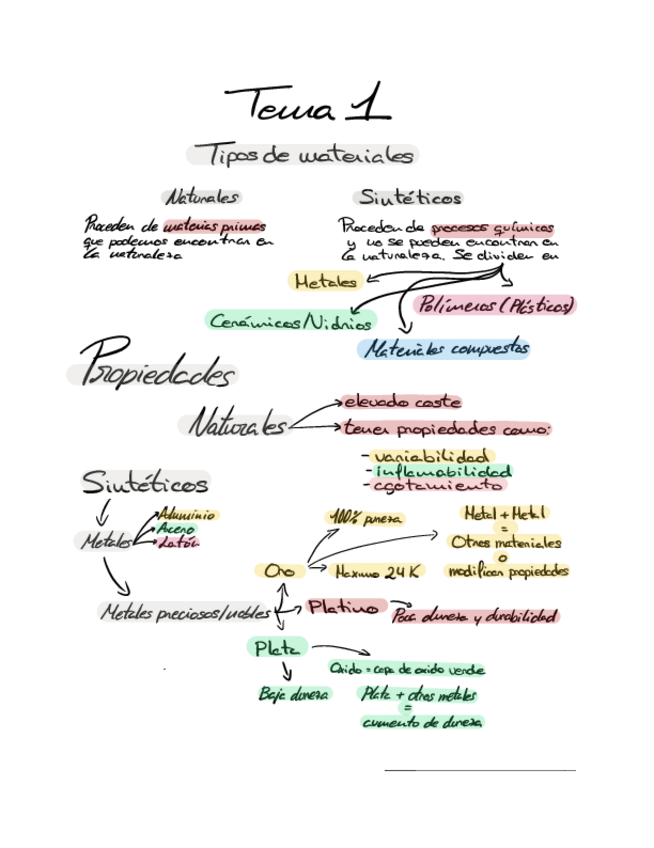 Tema 1
Tipos de materiales
Naturales
Proceden de materias primas
que podemos encontrar en
la naturaleza
Sintéticos
Proceden de procesos químicos
y no se pueden encontrar en
la naturaleza. Se dividen en
Metales
Polímeros (Plásticos)
Cerámicos/Vidrios
Materiales compuestos
Propiedades
Naturales
elevado coste
tener propiedades como:
- variabilidad
- inflamabilidad
- agotamiento
Sintéticos
Metales
Aluminio
Acero
Latón
Metales preciosos/nobles
Oro
100% pureza
Maximo 24 K
Metal + Metal
=
Otros materiales
o
modifican propiedades
Platino
Poca dureza y durabilidad
Plata
Oxido = capa de oxido verde
Baja dureza
Plata + otros metales
=
aumento de dureza